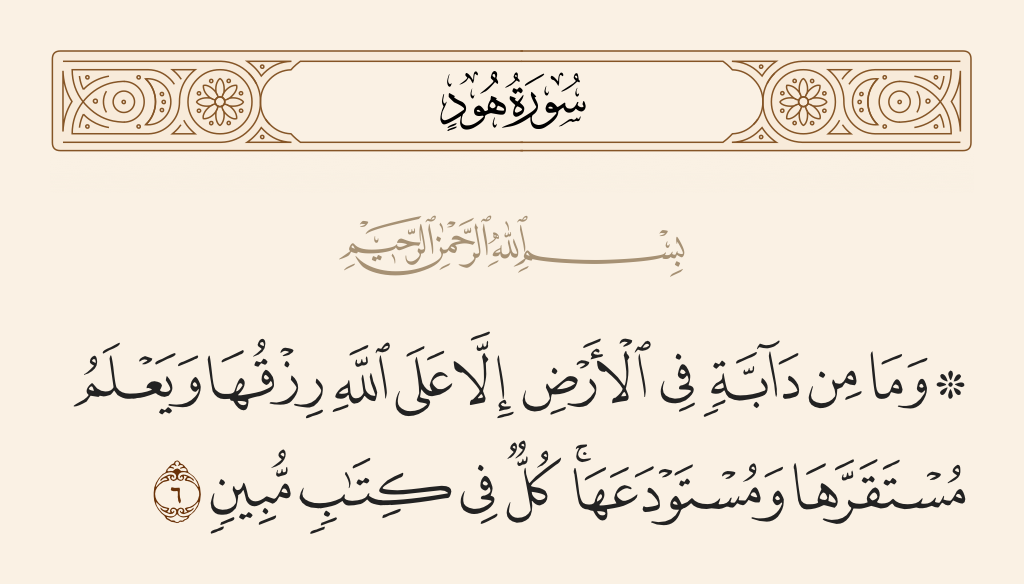 سُورَةُ هُودٍ
بِسْمِ ٱللَّهِ ٱلرَّحْمَٰنِ ٱلرَّحِيمِ
۞ وَمَا مِن دَآبَّةٍ فِى ٱلْأَرْضِ إِلَّا عَلَى ٱللَّهِ رِزْقُهَا وَيَعْلَمُ
مُسْتَقَرَّهَا وَمُسْتَوْدَعَهَا ۚ كُلٌّ فِى كِتَٰبٍ مُّبِينٍ ٦